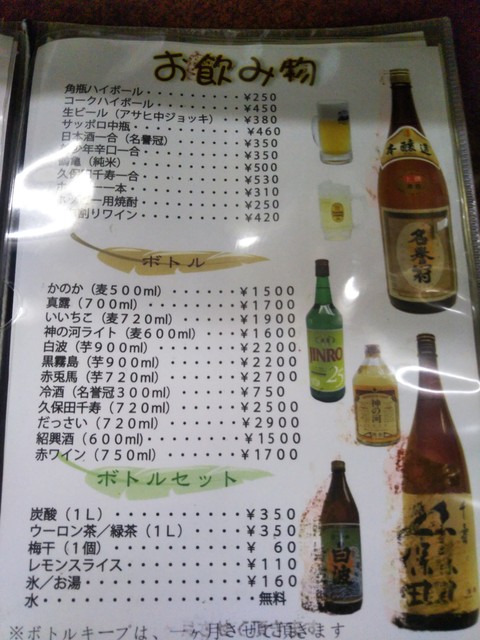 お飲み物
角瓶ハイボール・・・・・・・・・¥250
コークハイボール・・・・・・・・¥450
生ビール（アサヒ中ジョッキ）・・¥380
サッポロ中瓶・・・・・・・・・・¥460
日本酒一合（名誉冠）・・・・・・¥350
年辛口一合・・・・・・・¥350
亀（純米）・・・・・・・・¥500
久保田千寿一合・・・・・・・・¥530
一本・・・・・・・・¥310
一用焼酎・・・・・・・¥250
割りワイン・・・・・・・¥420
ボトル
かのか（麦500ml）・・・・・・・・¥1500
真露（700ml）・・・・・・・・・¥1700
いいちこ（麦720ml）・・・・・・¥1900
神の河ライト（麦600ml）・・・・¥1600
白波（芋900ml）・・・・・・・・¥2200
黒霧島（芋900ml）・・・・・・・¥2200
赤兎馬（芋720ml）・・・・・・・¥2700
冷酒（名誉冠300ml）・・・・・¥750
久保田千寿（720ml）・・・・・・¥2500
だっさい（720ml）・・・・・・・¥2900
紹興酒（600ml）・・・・・・・¥1500
赤ワイン（750ml）・・・・・・・¥1700
ボトルセット
炭酸（1L）・・・・・・・・・¥350
ウーロン茶／緑茶（1L）・・・・¥350
梅干（1個）・・・・・・・・・¥ 60
レモンスライス・・・・・・・・¥110
氷／お湯・・・・・・・・・・¥160
水・・・・・・・・・・・・・無料
※ボトルキープは、一ヶ月させて頂きます
本醸造
名誉冠
JINRO
25
神の河
白波
千寿
久保田